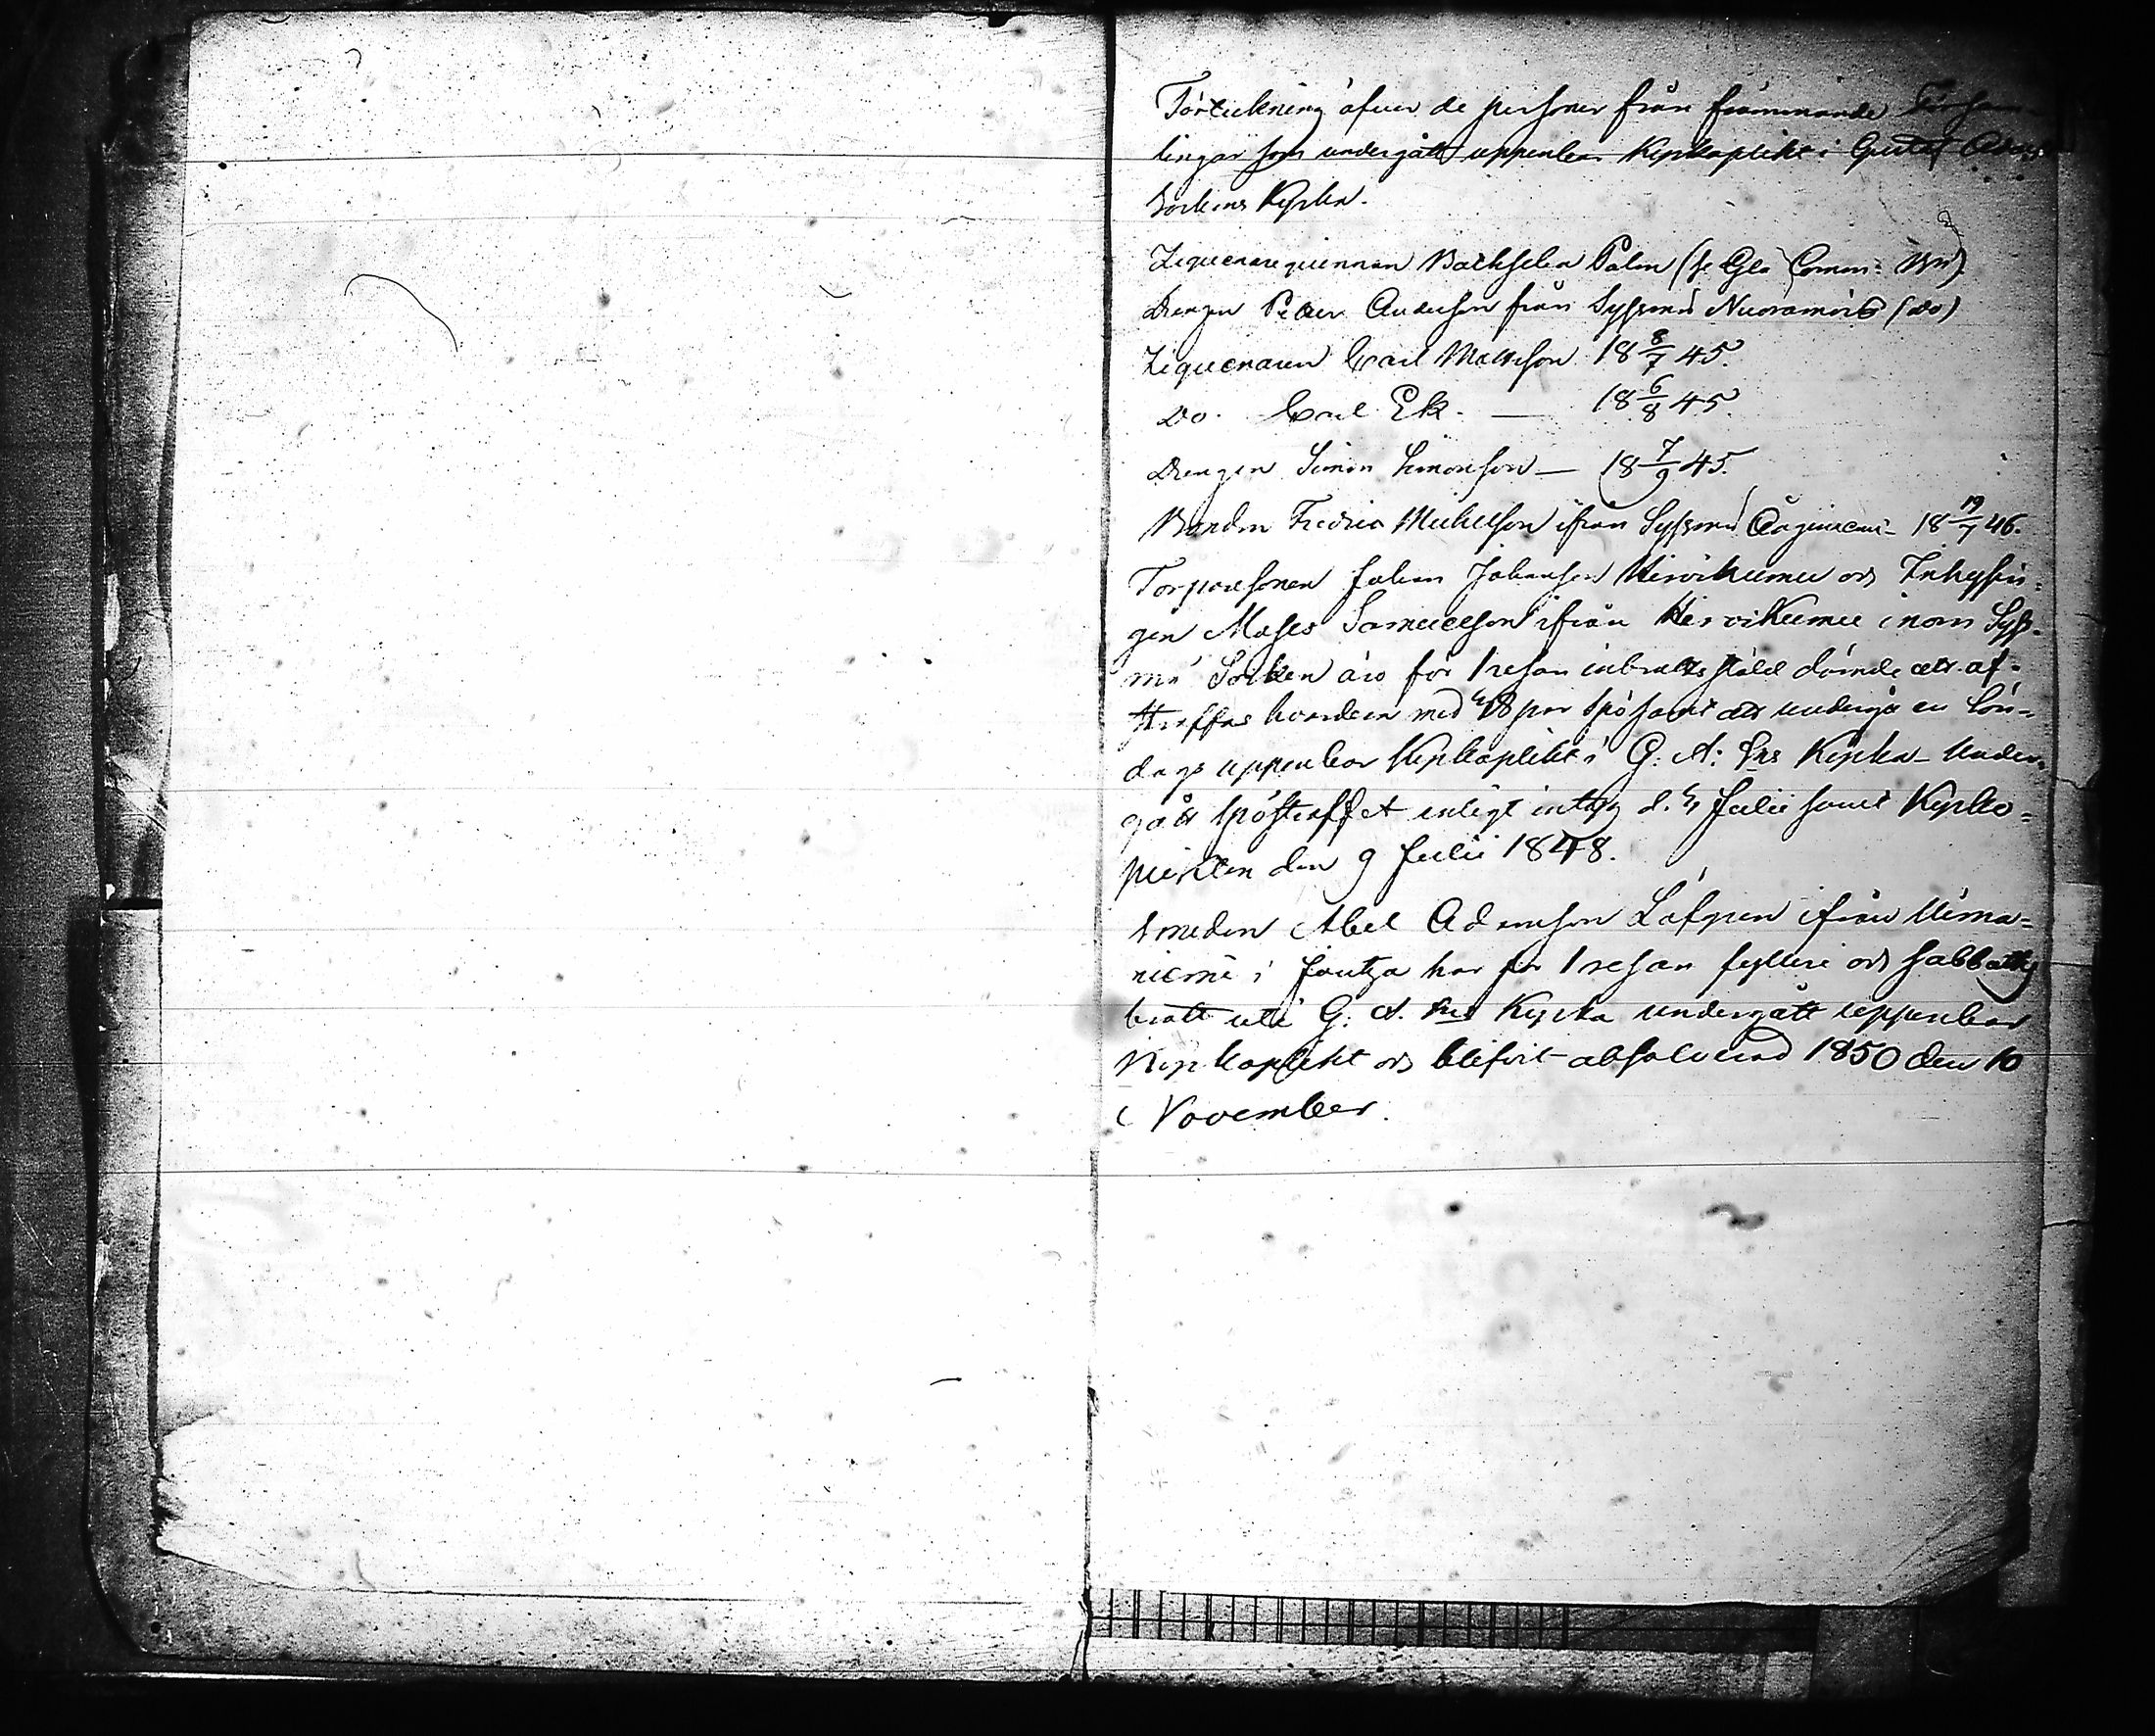 Förteckning öfver de personer från främmande Försam-
lingar som undergått uppenbar Kyrkoplikt i Gustaf Adolfs
Sockens Kyrka.
Ziguenareqvinnan Palm (se Gla Comm: )
Drengen Petter Anderson från Syssmä Nuoramois (do)
Ziguenaren Carl Mattsson 18 8/7 45.
Do. Carl Ek. — 18 6/8 45.
Drengen Simon Simonsson — 18 7/9 45.
Bonden Fredric Michelsson ifrån Syssmä 18 19/7 46.
Torparesonen Johan Johansson Hirvikumu och Inhysin-
gen Moses Samuelsson ifrån Hirvikumu inom Syss-
mä Socken äro för 1 resan inbrottsstöld dömde att af-
straffas hvardera med 18 par spö samt att undergå en Sön-
dags uppenbar Kyrkoplikt i G: A: Sns Kyrka - Under-
gått spöstraffet enligt intyg d. 4 Julii samt Kyrko-
plikten den 9 Julii 1848.
Smeden Abel Adamsson Löfgren ifrån Uima-
niemi i Joutza har för 1 resan fylleri och sabbaths
brott uti G. A. Sns Kyrka undergått uppenbar
Kyrkoplikt och blifvit absolverad 1850 den 10
November.